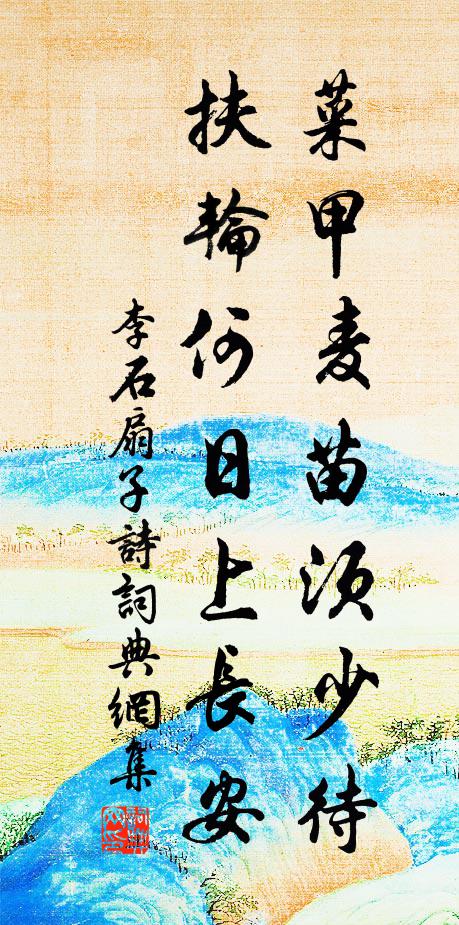 菜甲麦苗須少待
扶輪何日上長安
李石扇子詩詞典網集